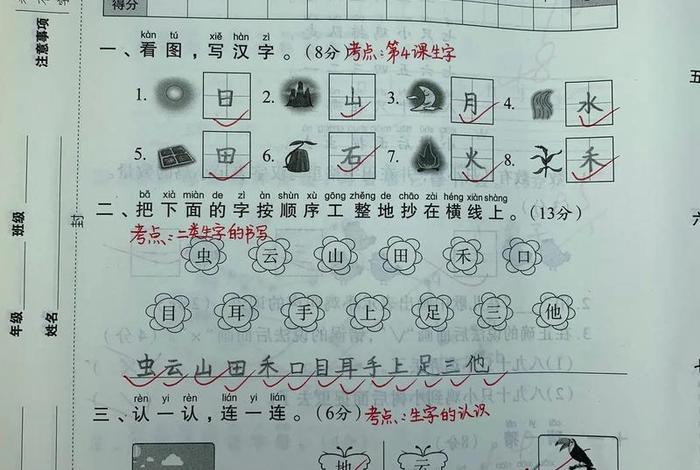 得分
注意事项
kàn tú xiě hàn zì
一、看图，写汉字。（8分）考点：第4课生字
1. 日 2. 山 3. 月 4. 水
5. 田 6. 石 7. 火 8. 禾
bǎ xià miàn de zì àn shùn xù gōng zhěng de chāo zài héng xiàn shàng
二、把下面的字按顺序工整地抄在横线上。（13分）
考点：二类生字的书写
虫 云 山 田 禾 口
目 耳 手 上 足 三 他
虫云山田禾口目耳手上足三他
rèn yi rèn lián yi lián
三、认一认，连一连。（6分）考点：生字的认识
地 云
封
班级
年级
姓名
五
六